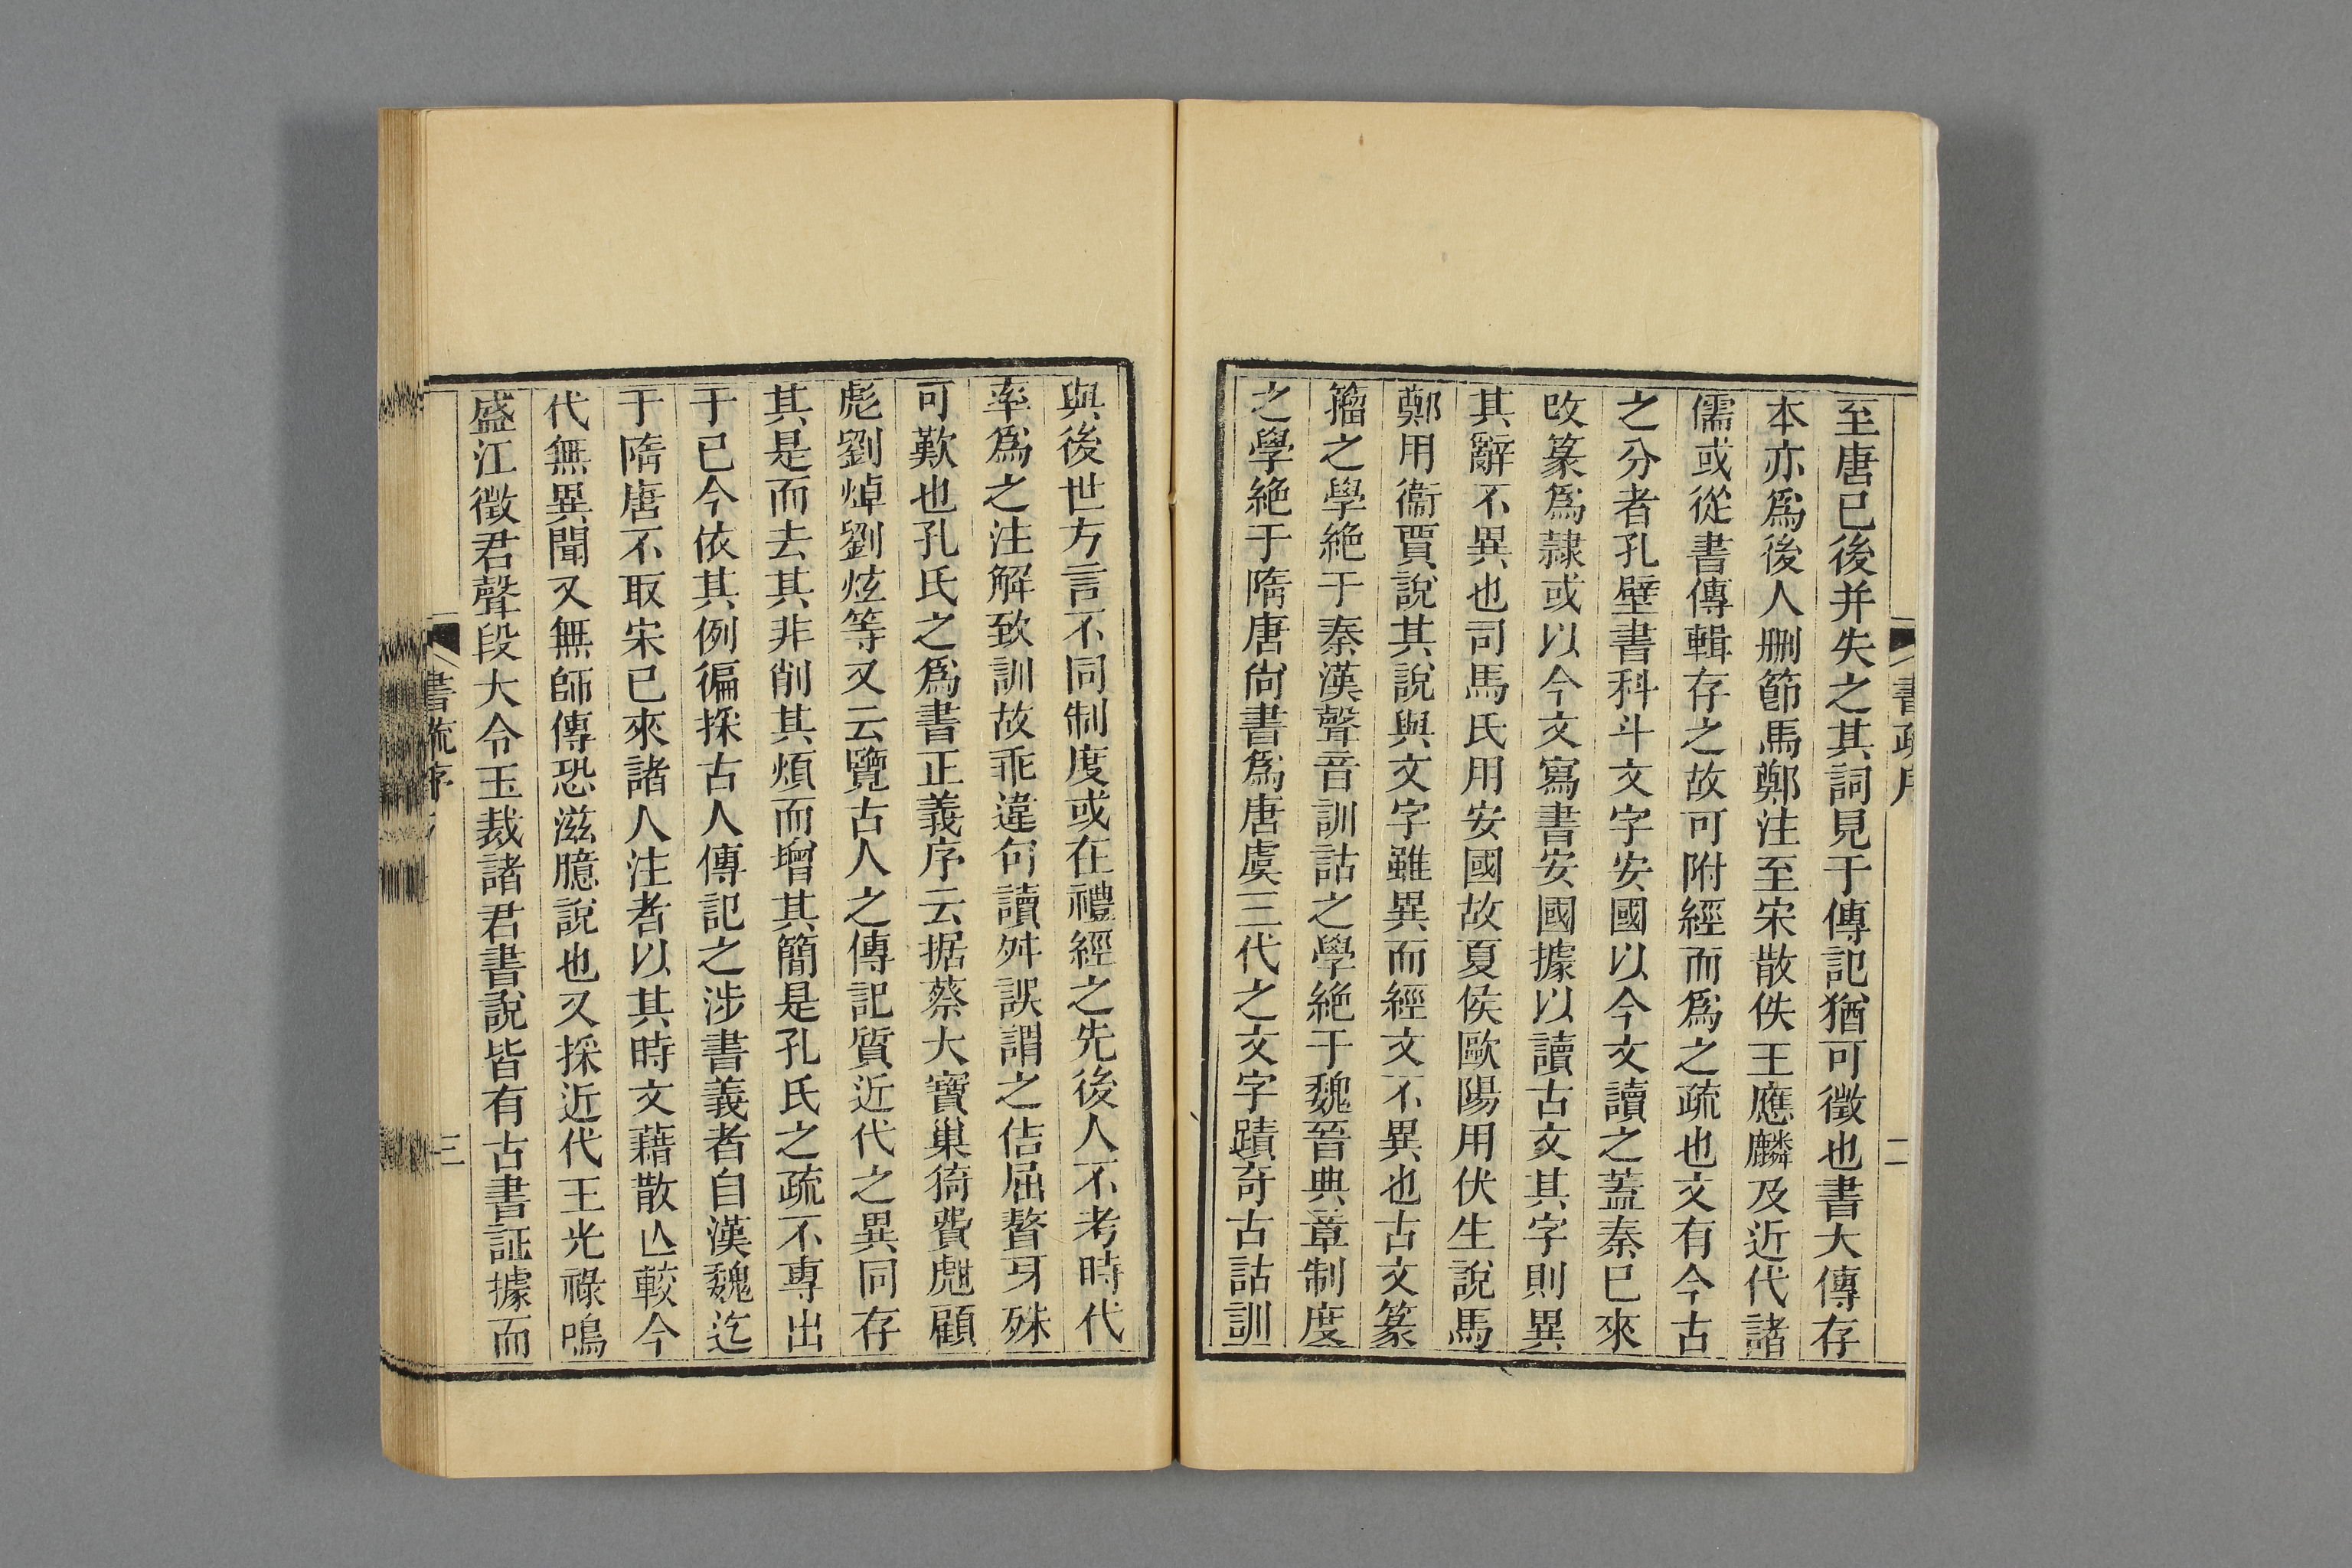 書疏序
二
至唐已後并失之其詞見于傳記猶可徵也書大傳存
本亦爲後人刪節馬鄭注至宋散佚王應麟及近代諸
儒或從書傳輯存之故可附經而爲之疏也文有今古
之分者孔壁書科斗文字安國以今文讀之蓋秦已來
改篆爲隸或以今文寫書安國據以讀古文其字則異
其辭不異也司馬氏用安國故夏侯歐陽用伏生說馬
鄭用衞賈說其說與文字雖異而經文不異也古文篆
籀之學絕于秦漢聲音訓詁之學絕于魏晉典章制度
之學絕于隋唐尙書爲唐虞三代之文字蹟奇古詁訓
與後世方言不同制度或在禮經之先後人不考時代
率爲之注解致訓故乖違句讀舛誤謂之佶屈聱牙殊
可歎也孔氏之爲書正義序云据蔡大寶巢猗費甝顧
彪劉焯劉炫等又云覽古人之傳記質近代之異同存
其是而去其非削其煩而增其簡是孔氏之疏不專出
于已今依其例徧採古人傳記之涉書義者自漢魏迄
于隋唐不取宋已來諸人注者以其時文藉散亾較今
代無異聞又無師傳恐滋臆說也又採近代王光祿鳴
盛江徵君聲段大令玉裁諸君書說皆有古書証據而
書疏序
三